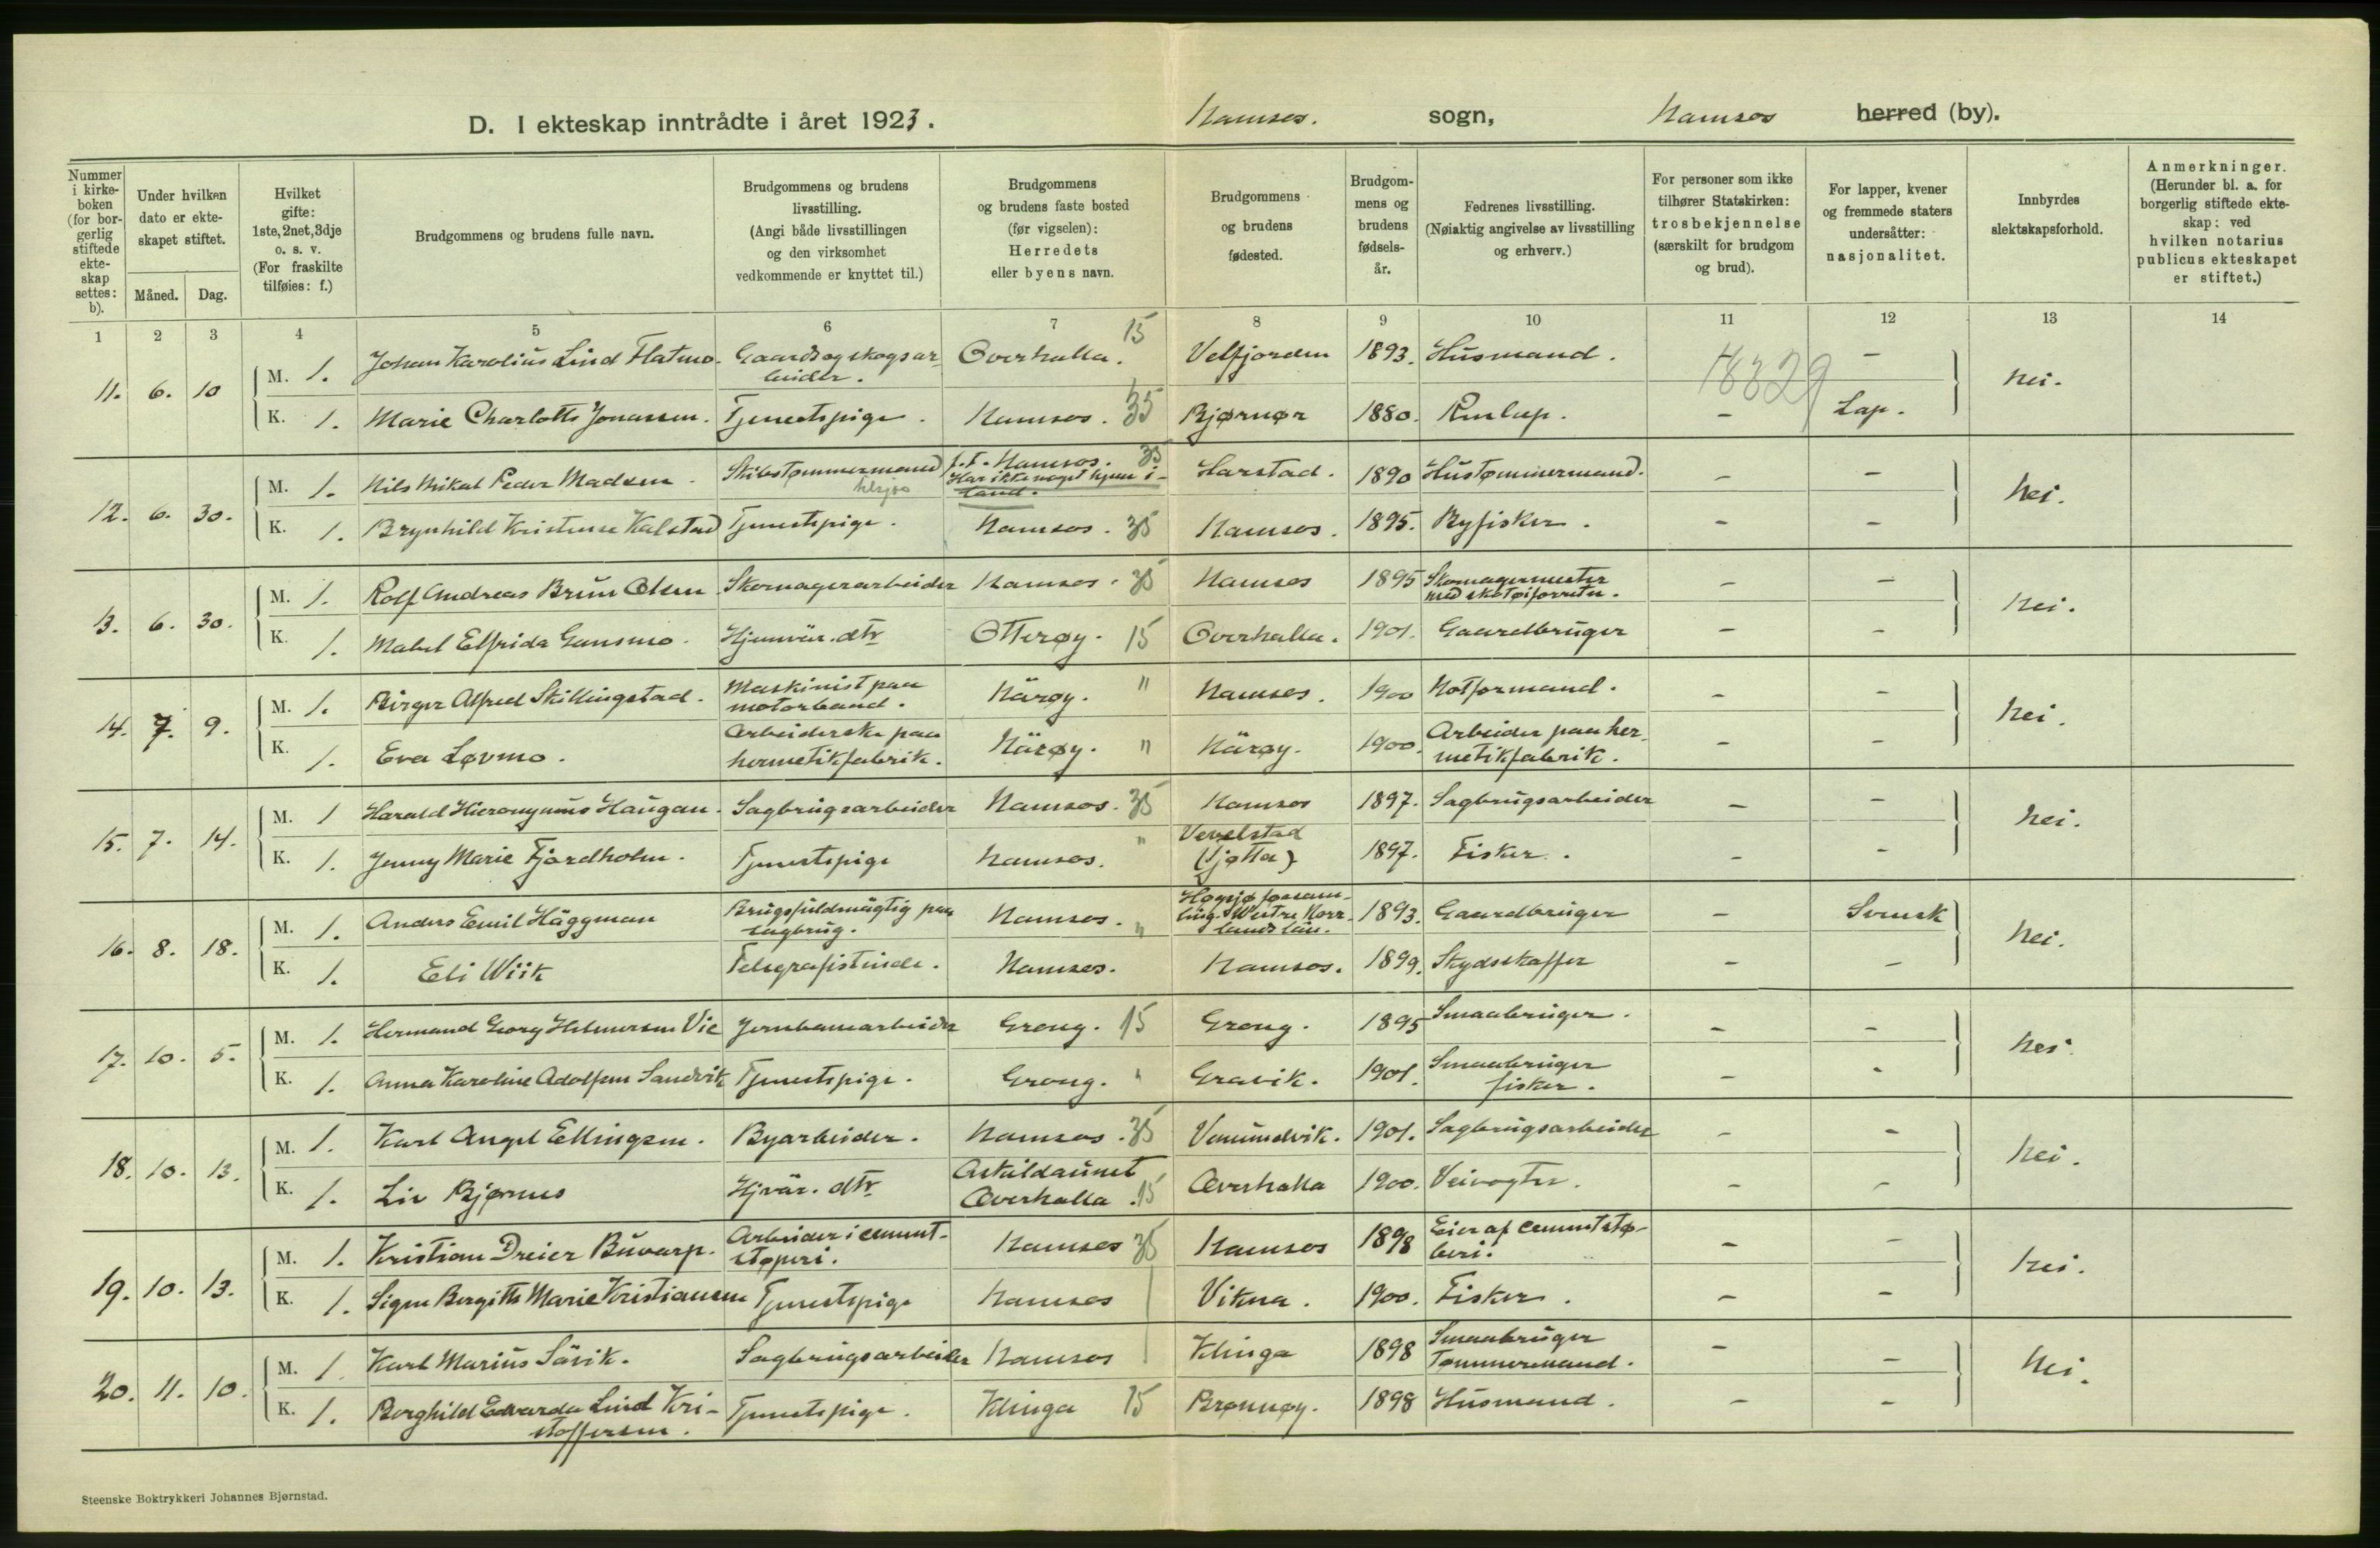 D. I ekteskap inntrådte i året 1923. Namsos. sogn, Namsos herred (by).
Nummer i kirke-boken (for bor-gerlig stiftede ekte-skap settes: b).
Under hvilken dato er ekte-skapet stiftet.
Måned. Dag.
Hvilket gifte: 1ste, 2net, 3dje o. s. v. (For fraskilte tilføies: f.)
Brudgommens og brudens fulle navn.
Brudgommens og brudens livsstilling. (Angi både livsstillingen og den virksomhet vedkommende er knyttet til.)
Brudgommens og brudens faste bosted (før vigselen): Herredets eller byens navn.
Brudgommens og brudens fødested.
Brudgom-mens og brudens fødsels-år.
Fedrenes livsstilling. (Nøiaktig angivelse av livsstilling og erhverv.)
For personer som ikke tilhører Statskirken: trosbekjennelse (særskilt for brudgom og brud).
For lapper, kvener og fremmede staters undersåtter: nasjonalitet.
Innbyrdes slektskapsforhold.
Anmerkninger. (Herunder bl. a. for borgerlig stiftede ekte-skap: ved hvilken notarius publicus ekteskapet er stiftet.)
1 2 3 4 5 6 7 8 9 10 11 12 13 14
11. 6. 10 M. 1. Johan Karolius Lind Flatmo. Gaards og skogsar-beider. Overhalla. 15 Velfjorden 1893. Husmand. 18329 - Nei.
K. 1. Marie Charlotte Jonassen. Tjenestepige. Namsos. 35 Bjørnør 1880. - Lap.
12. 6. 30. M. 1. Nils Mikal Peder Madsen. Skibstømmermand tilsjøs f.t. Namsos. 35 Har ikke noget hjem i land. Harstad. 1890 Hustømmermand. - - Nei.
K. 1. Brynhild Kristense Kalstad Tjenestepige. Namsos. 35 Namsos. 1895. Byfisker. - -
13. 6. 30. M. 1. Rolf Andreas Bruun Olsen Skomagerarbeider Namsos. 35 Namsos 1895 Skomagermester med skotøiforretn. - - Nei.
K. 1. Mabel Elfrida Gansmo. Hjemvär. dtr Otterøy. 15 Overhalla. 1901. Gaardbruger - -
14. 7. 9. M. 1. Birger Alfred Skillingstad. Maskinist paa motorbaad. Närøy. " Namsos. 1900 Notformand. - - Nei.
K. 1. Eva Løvmo. Arbeiderske paa hermetikfabrik. Närøy. " Närøy. 1900. Arbeider paa her-metikfabrik. - -
15. 7. 14. M. 1 Harald Hieronymus Haugan. Sagbrugsarbeider Namsos. 35 Namsos 1897. Sagbrugsarbeider - - Nei.
K. 1. Jenny Marie Fjordholm. Tjenestepige Namsos. " Vevelstad (Tjøtta) 1897. Fisker. - -
16. 8. 18. M. 1. Anders Emil Häggman Brugsfuldmägtig paa sagbrug. Namsos. " Högsjö försam-ling. Westre Norr-lands län. 1893. Gaardbruger - Svensk Nei.
K. 1. Eli Wiik Telegrafistinde. Namsos. Namsos. 1899. Skydsskaffer - -
17. 10. 5. M. 1. Hermand Georg Hilmersen Vie Jernbanearbeider Grong. 15 Grong. 1895 Smaabruger. - - Nei.
K. 1. Anna Karoline Adolfsen Sandvik Tjenestepige. Grong. " Gravik. 1901. Smaabruger fisker. - -
18. 10. 13. M. 1. Karl Angel Ellingsen. Byarbeider. Namsos. 35 Vemundvik. 1901. Sagbrugsarbeider - - Nei.
K. 1. Liv Bjørnes Hjvär. dtr Askildaunet Overhalla. 15 Overhalla 1900. Veivogter. - -
19. 10. 13. M. 1. Kristian Dreier Buvarp. Arbeider i cement-støperi. Namsos 35 Namsos 1898 Eier af cementstø-beri. - - Nei.
K. 1. Signe Bergitte Marie Kristiansen Tjenestepige Namsos Vikna. 1900. Fisker. - -
20. 11. 10. M. 1. Karl Marius Sävik. Sagbrugsarbeider Namsos Klinga 1898 Smaabruger Tømmermand. - - Nei.
K. 1. Borghild Edvarda Lind Kri-stoffersen. Tjenestepige. Klinga 15 Brønnøy. 1898 Husmand. - -
Steenske Boktrykkeri Johannes Bjørnstad.